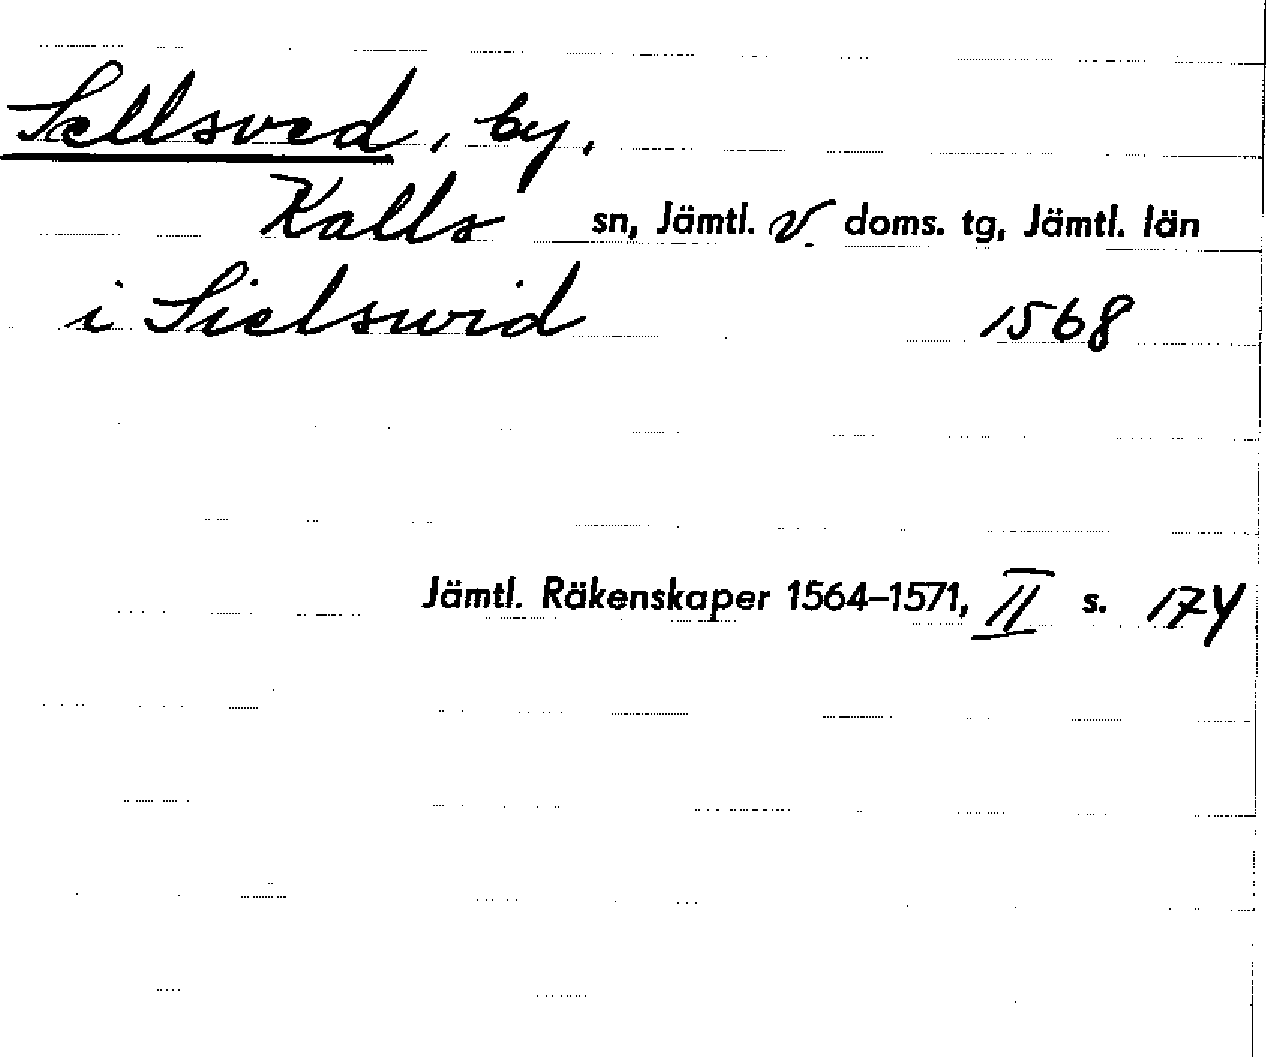 Sellsved, by,
Kalls sn, Jämtl. v. doms. tg, Jämtl. län
i Sielswid 1568
Jämtl. Räkenskaper 1564–1571, II s. 174